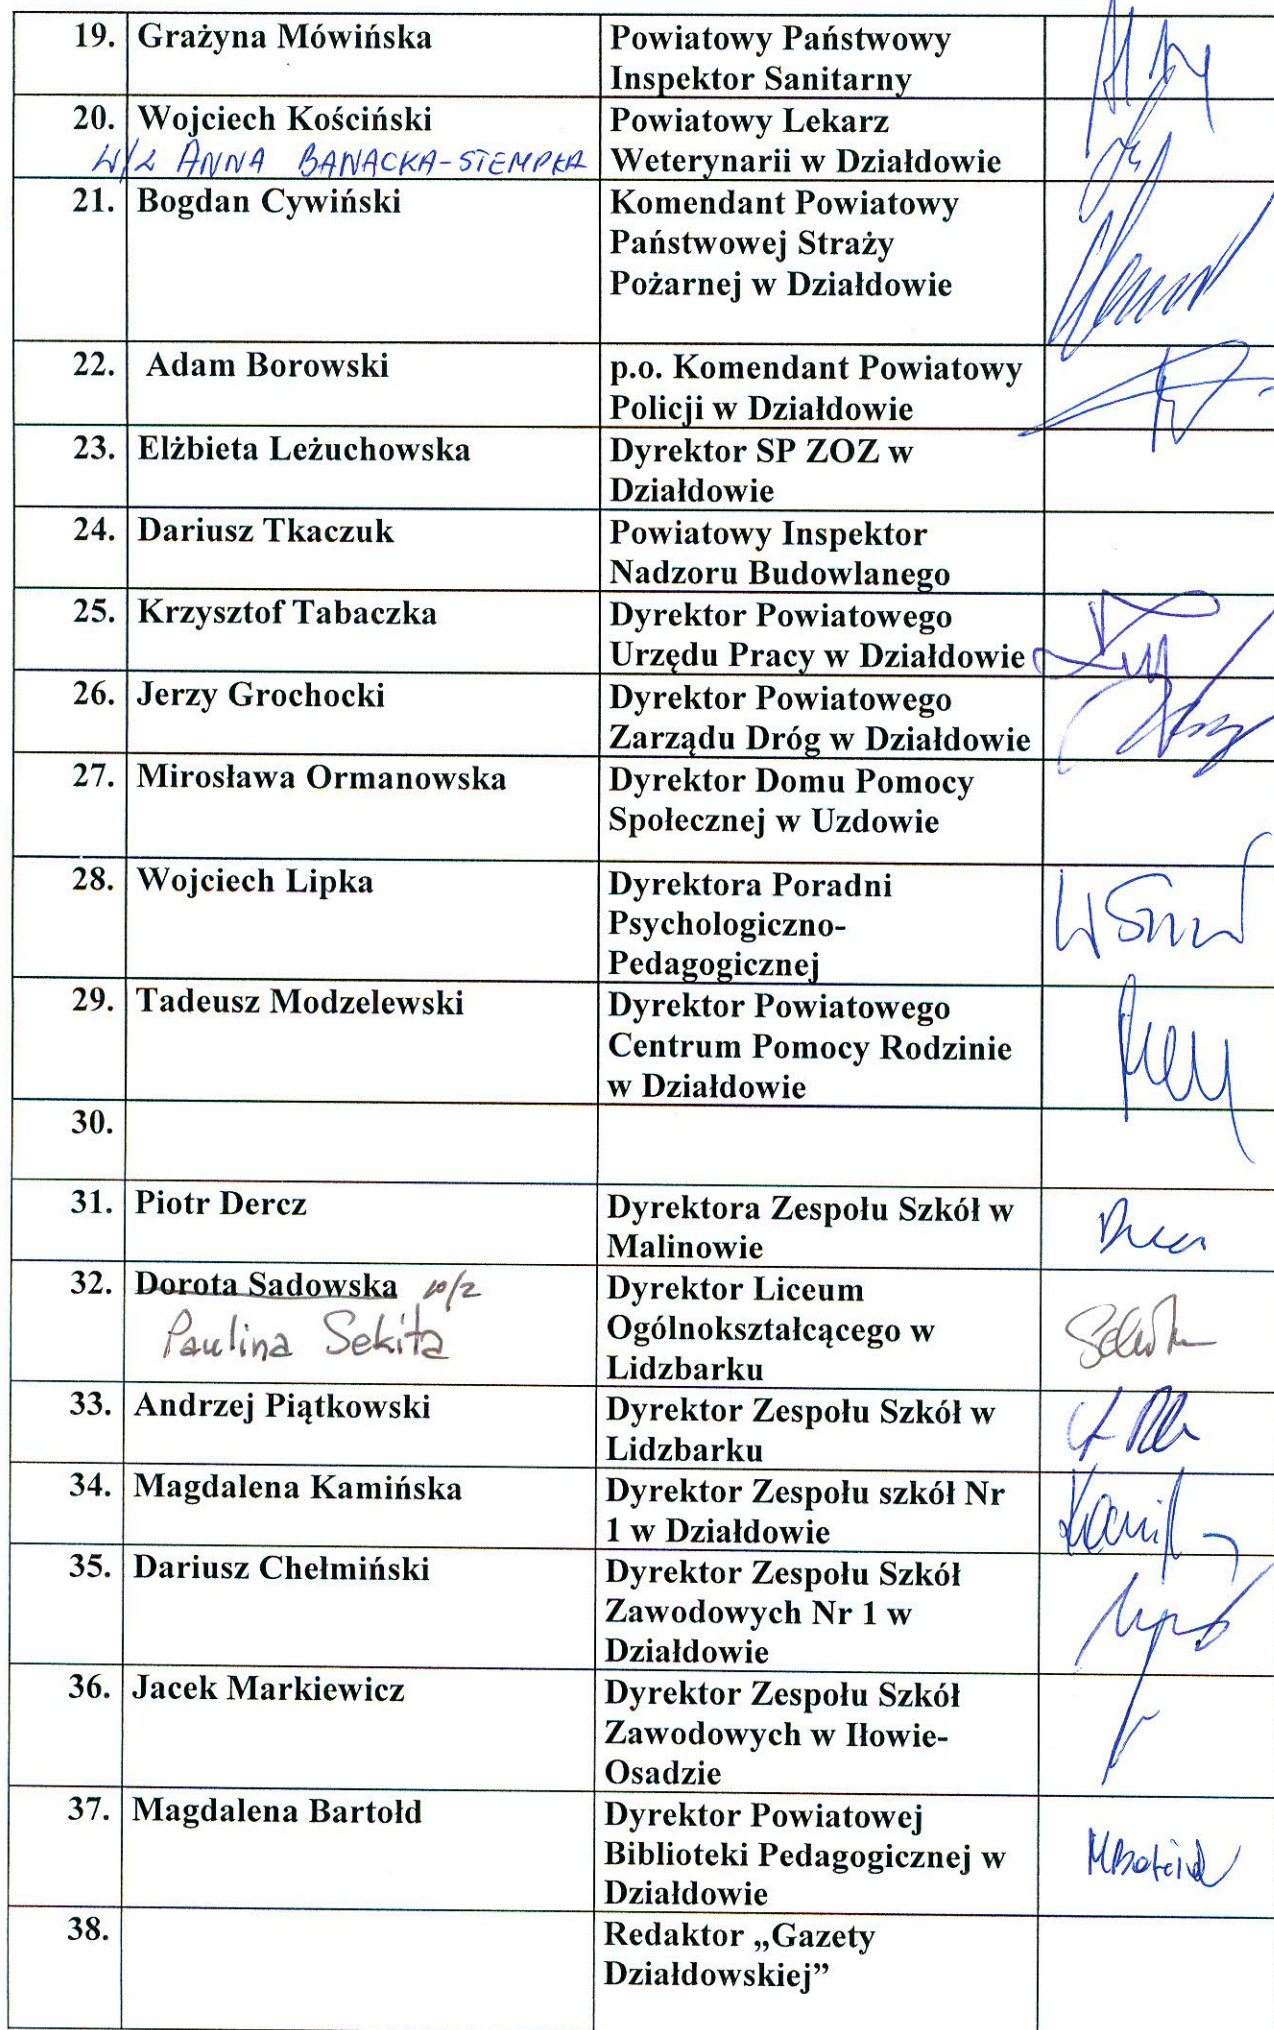 19. Grażyna Mówińska Powiatowy Państwowy
Inspektor Sanitarny
20. Wojciech Kościński Powiatowy Lekarz
W/Z ANNA BANACKA-STEMPKA Weterynarii w Działdowie
21. Bogdan Cywiński Komendant Powiatowy
Państwowej Straży
Pożarnej w Działdowie
22. Adam Borowski p.o. Komendant Powiatowy
Policji w Działdowie
23. Elżbieta Leżuchowska Dyrektor SP ZOZ w
Działdowie
24. Dariusz Tkaczuk Powiatowy Inspektor
Nadzoru Budowlanego
25. Krzysztof Tabaczka Dyrektor Powiatowego
Urzędu Pracy w Działdowie
26. Jerzy Grochocki Dyrektor Powiatowego
Zarządu Dróg w Działdowie
27. Mirosława Ormanowska Dyrektor Domu Pomocy
Społecznej w Uzdowie
28. Wojciech Lipka Dyrektora Poradni
Psychologiczno-
Pedagogicznej
29. Tadeusz Modzelewski Dyrektor Powiatowego
Centrum Pomocy Rodzinie
w Działdowie
30.
31. Piotr Dercz Dyrektora Zespołu Szkół w
Malinowie
32. Dorota Sadowska w/z Dyrektor Liceum
Paulina Sekita Ogólnokształcącego w
Lidzbarku
33. Andrzej Piątkowski Dyrektor Zespołu Szkół w
Lidzbarku
34. Magdalena Kamińska Dyrektor Zespołu szkół Nr
1 w Działdowie
35. Dariusz Chełmiński Dyrektor Zespołu Szkół
Zawodowych Nr 1 w
Działdowie
36. Jacek Markiewicz Dyrektor Zespołu Szkół
Zawodowych w Iłowie-
Osadzie
37. Magdalena Bartołd Dyrektor Powiatowej
Biblioteki Pedagogicznej w
Działdowie
38. Redaktor „Gazety
Działdowskiej”